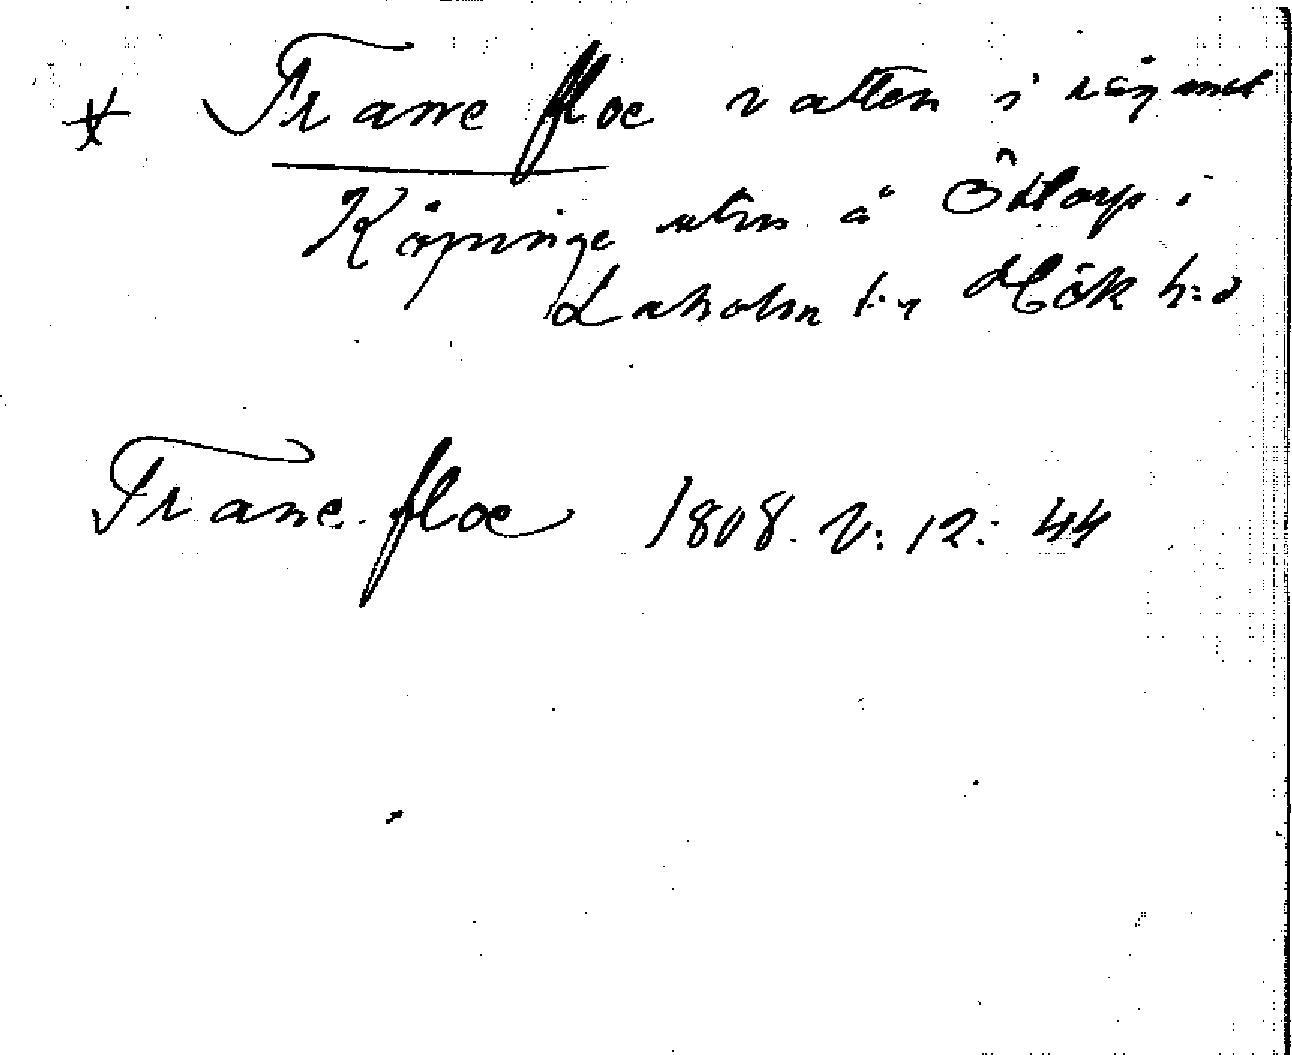 * Trane floe vatten i rågmet
Köpinge utm å Östorp i
Laholm l:n Hök h:d
Trane floe 1808. V: 12: 44